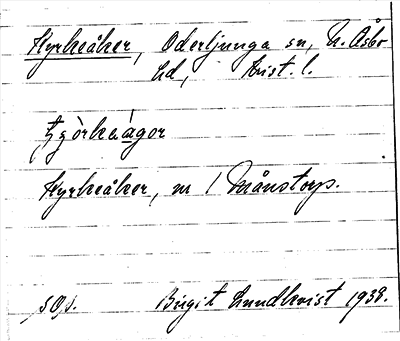 Kyrkeåker, Oderljunga sn, N. Åsbo
hd, Krist. l.
Kyrkeåker, m / Månstorp.
SOJ. Birgit Lundkvist 1938.